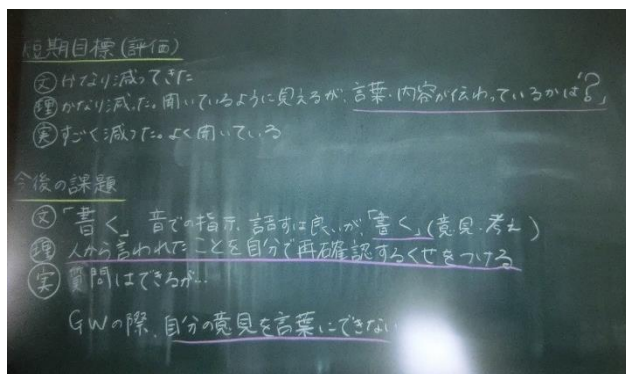 短期目標(評価)
文 かなり減ってきた
理 かなり減った。聞いているように見えるが、言葉・内容が伝わっているかは「?」
実 すごく減った。よく聞いている
今後の課題
文 「書く」 音での指示、話すは良いが、「書く」(意見・考え)
理 人から言われたことを自分で再確認するくせをつける
実 質問はできるが…
GWの際、自分の意見を言葉にできない